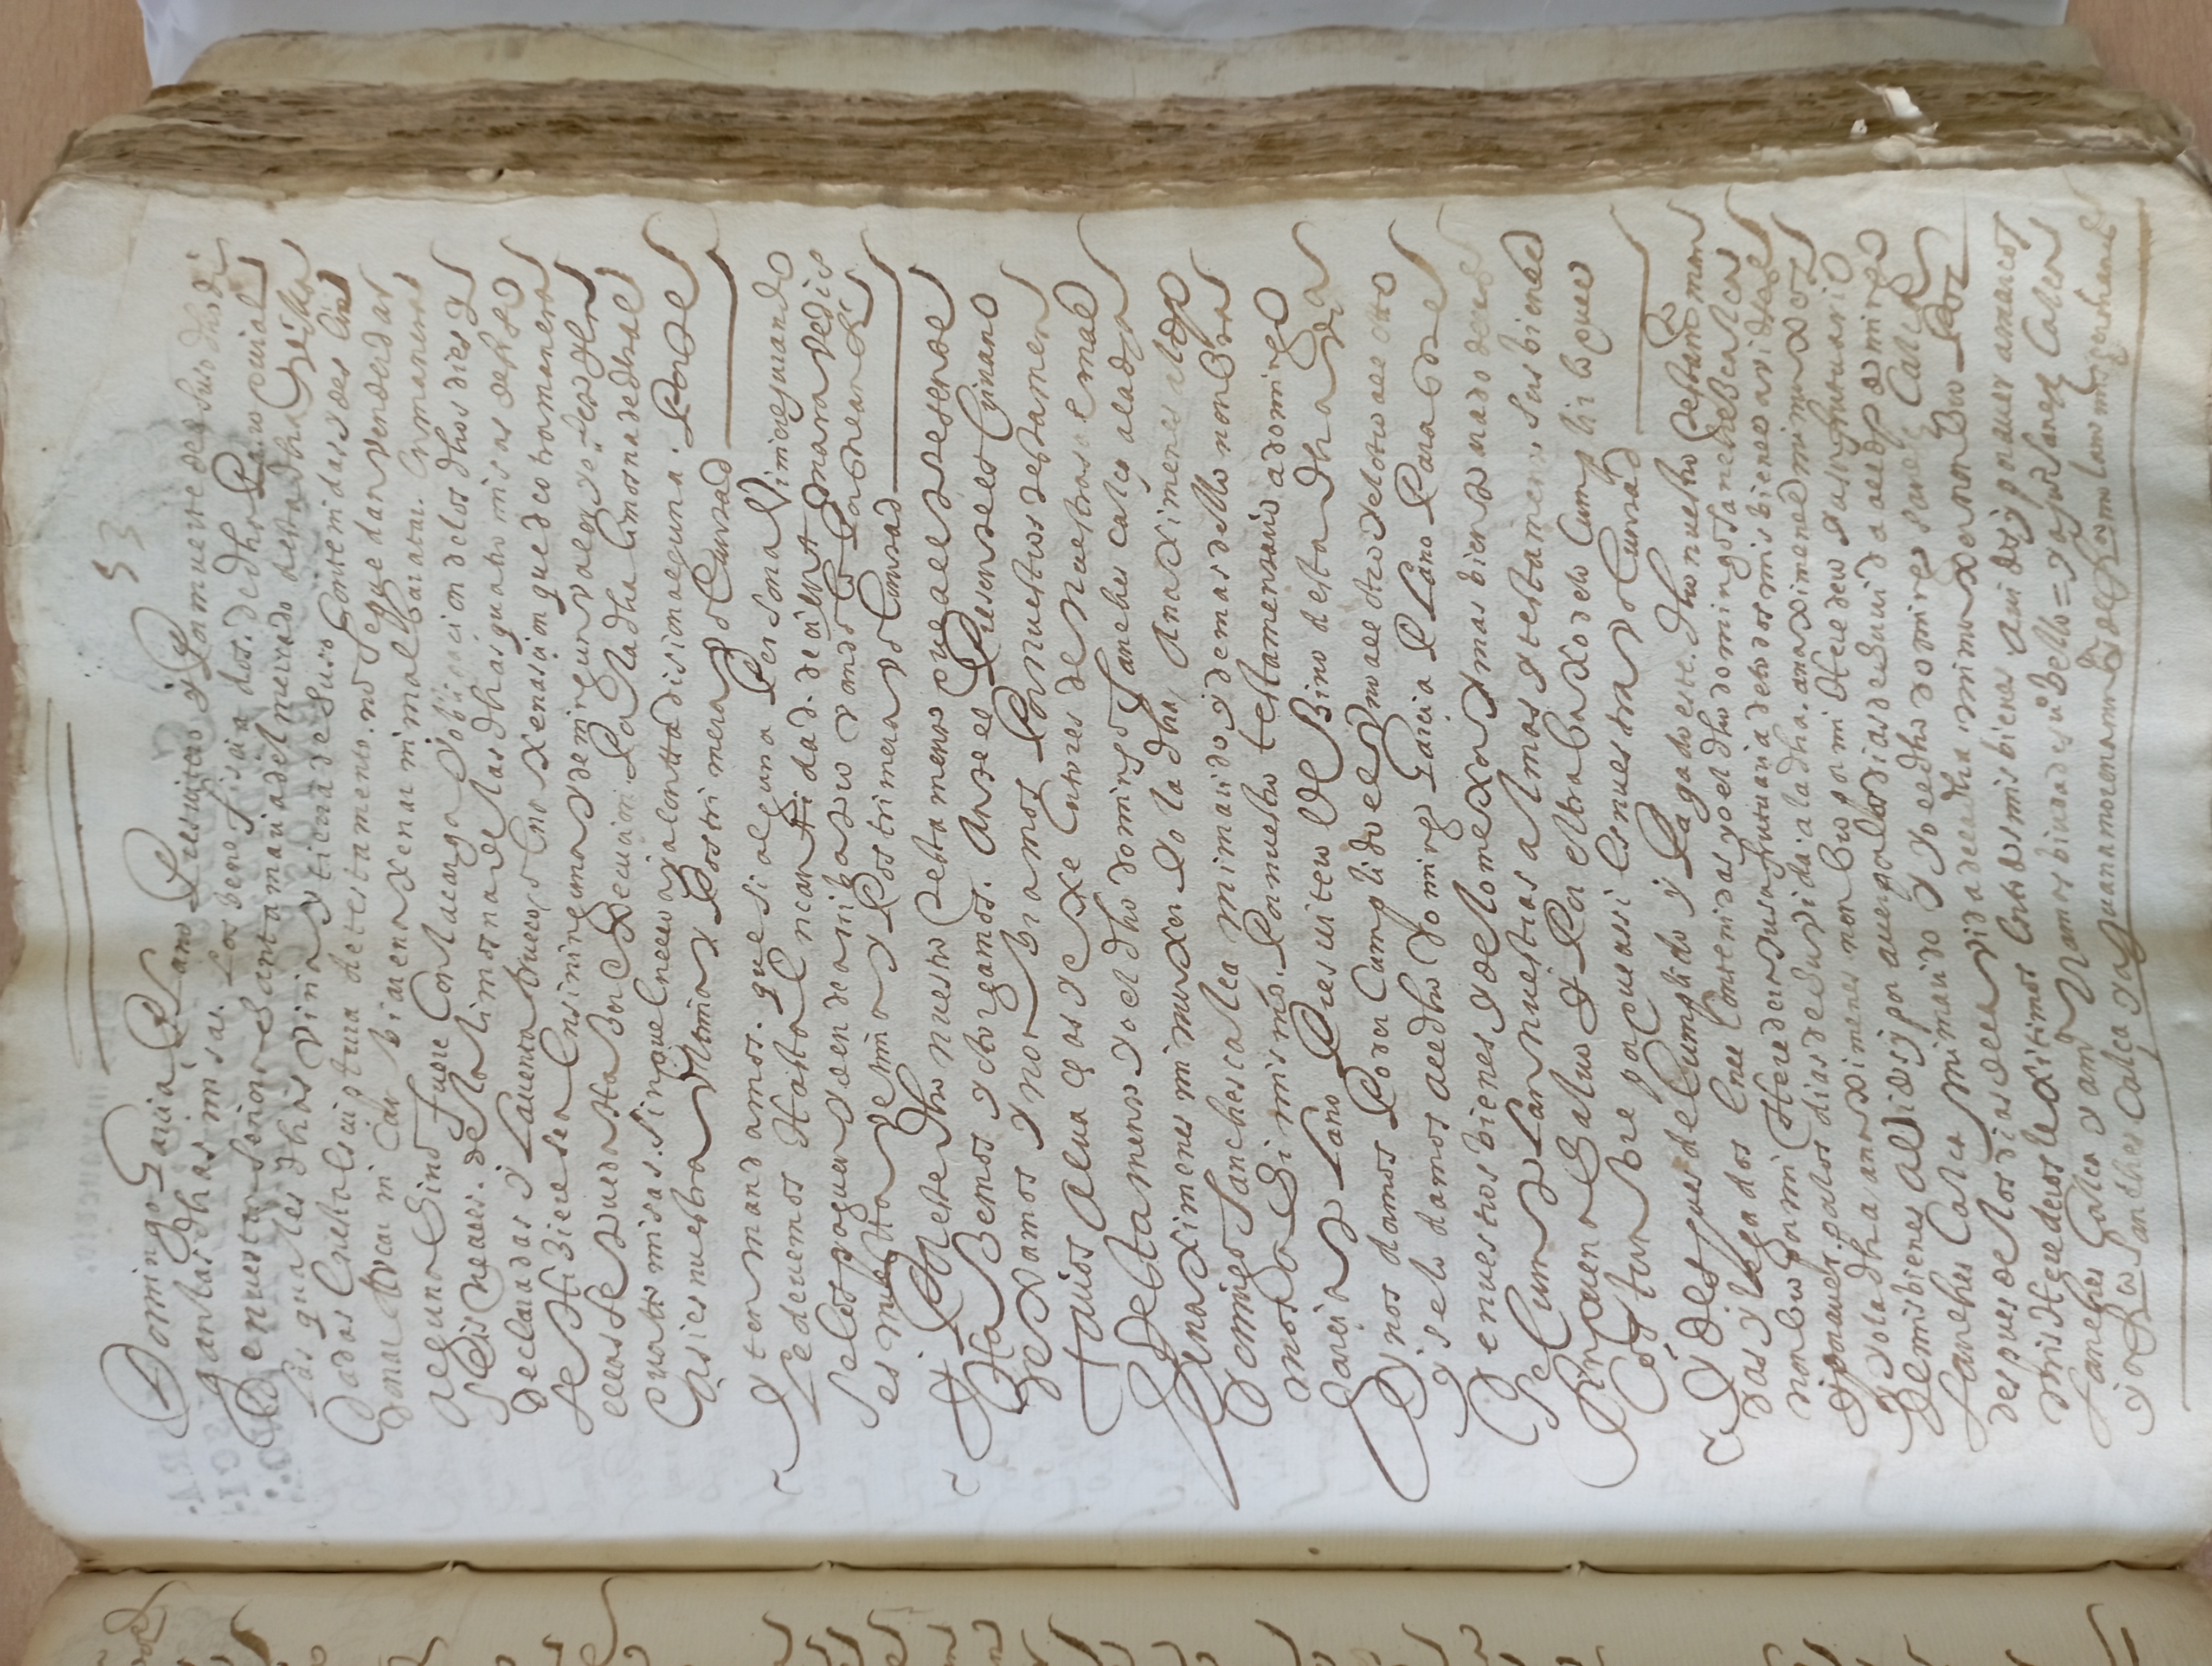 53
Domingo Garcia Plano Presvitero y Por muerte del suso dho di
gan las dhas misas. Los benefisiados. de dha Parroquial
De nuestra Señora Santa maria del mercado desta dha villa
Las quales dhas viña y tierra de suso Contenidas y deslin
dadas En esta Escriptura de testamento. no se quedan vender dar
donar trocar ni Canbiar enaxenar ni mal baratar. En manera
alguna Sino fuere Con la carga y obligacion de los dhos dies y
seis Reales. de la limosna de las dhas quatro misas de suso
declaradas y La venta trueco, o Enaxenasion que de otra manera
se Hisiere sea En si ninguna y de ningun valor y en
ellas se pueda Haber Execucion. Por la dha limosna de dhas
quatro misas. Sin que En ello aya contradision alguna. Porque
asi es nuestra Vltima y Postrimera voluntad
yten mandamos. que si alguna Persona Viniere jurando
Le devemos Hasta En cantidad. de cient maravedis
se los paguen y den de arriba provandolo Porque ansi
es nuestra vltima y Postrimera voluntad
y Por este dho nuestro testamento que al presente
Hasemos y otorgamos. Ante el Presente escrivano
dexamos y nonbramos Por nuestros testamen
tarios alvaçeas y exe Cutores de nuestras almas
testamento yo el dho domingo sanches calça a la dha
ana Ximenes mi muxer Yo la dha, Ana Ximenes al dho
Domingo sanches calça mi marido y demas dello nonbra
mos a Si mismo. Por nuestro testamentario a domingo
Garcia Plano Presvitero veSino desta dha va
y nos damos Poder Cumplido el Vno al otro y el otro al otro
y se lo damos al dho Domingo Garcia Plano Para que
De nuestros bienes y de lo mexor y mas bien parado dellos
se Cumplan nuestras almas y testamento, sus bienes
sin pena Salvo y Por el trabaxo de lo Cumplir lo que es
Costunbre porque assi Es nuestra voluntad
y despues de Cumplido y Pagado este. dho nuestro testamto man
das y legados En el Contenidas yo el dho domingo sanches calça
nonbro por mi Heredera y usufrutuaria de todos mis bienes avidos
y por aver. por los dias de Su vida. a la dha. ana Ximenes mi muxer
y yo la dha, ana Ximenes nonbro por mi Heredero y usufrutuario
de mis bienes aVidos y por aver por los dias de Su vida al dho domingo
sanches Calça mi marido y yo el dho domingo sanchz Calça
despues de los dias de la vida de la dha. mi muxer nonbro Por
mis Herederos lexitimos En todos mis bienes. avidos y por aver a marcos
sanches Calça y a Ramos biuda de Bello = y a juo sanchz Calça
y a Franco Sanches Calça y a Juana morena mugr de mis hermanos